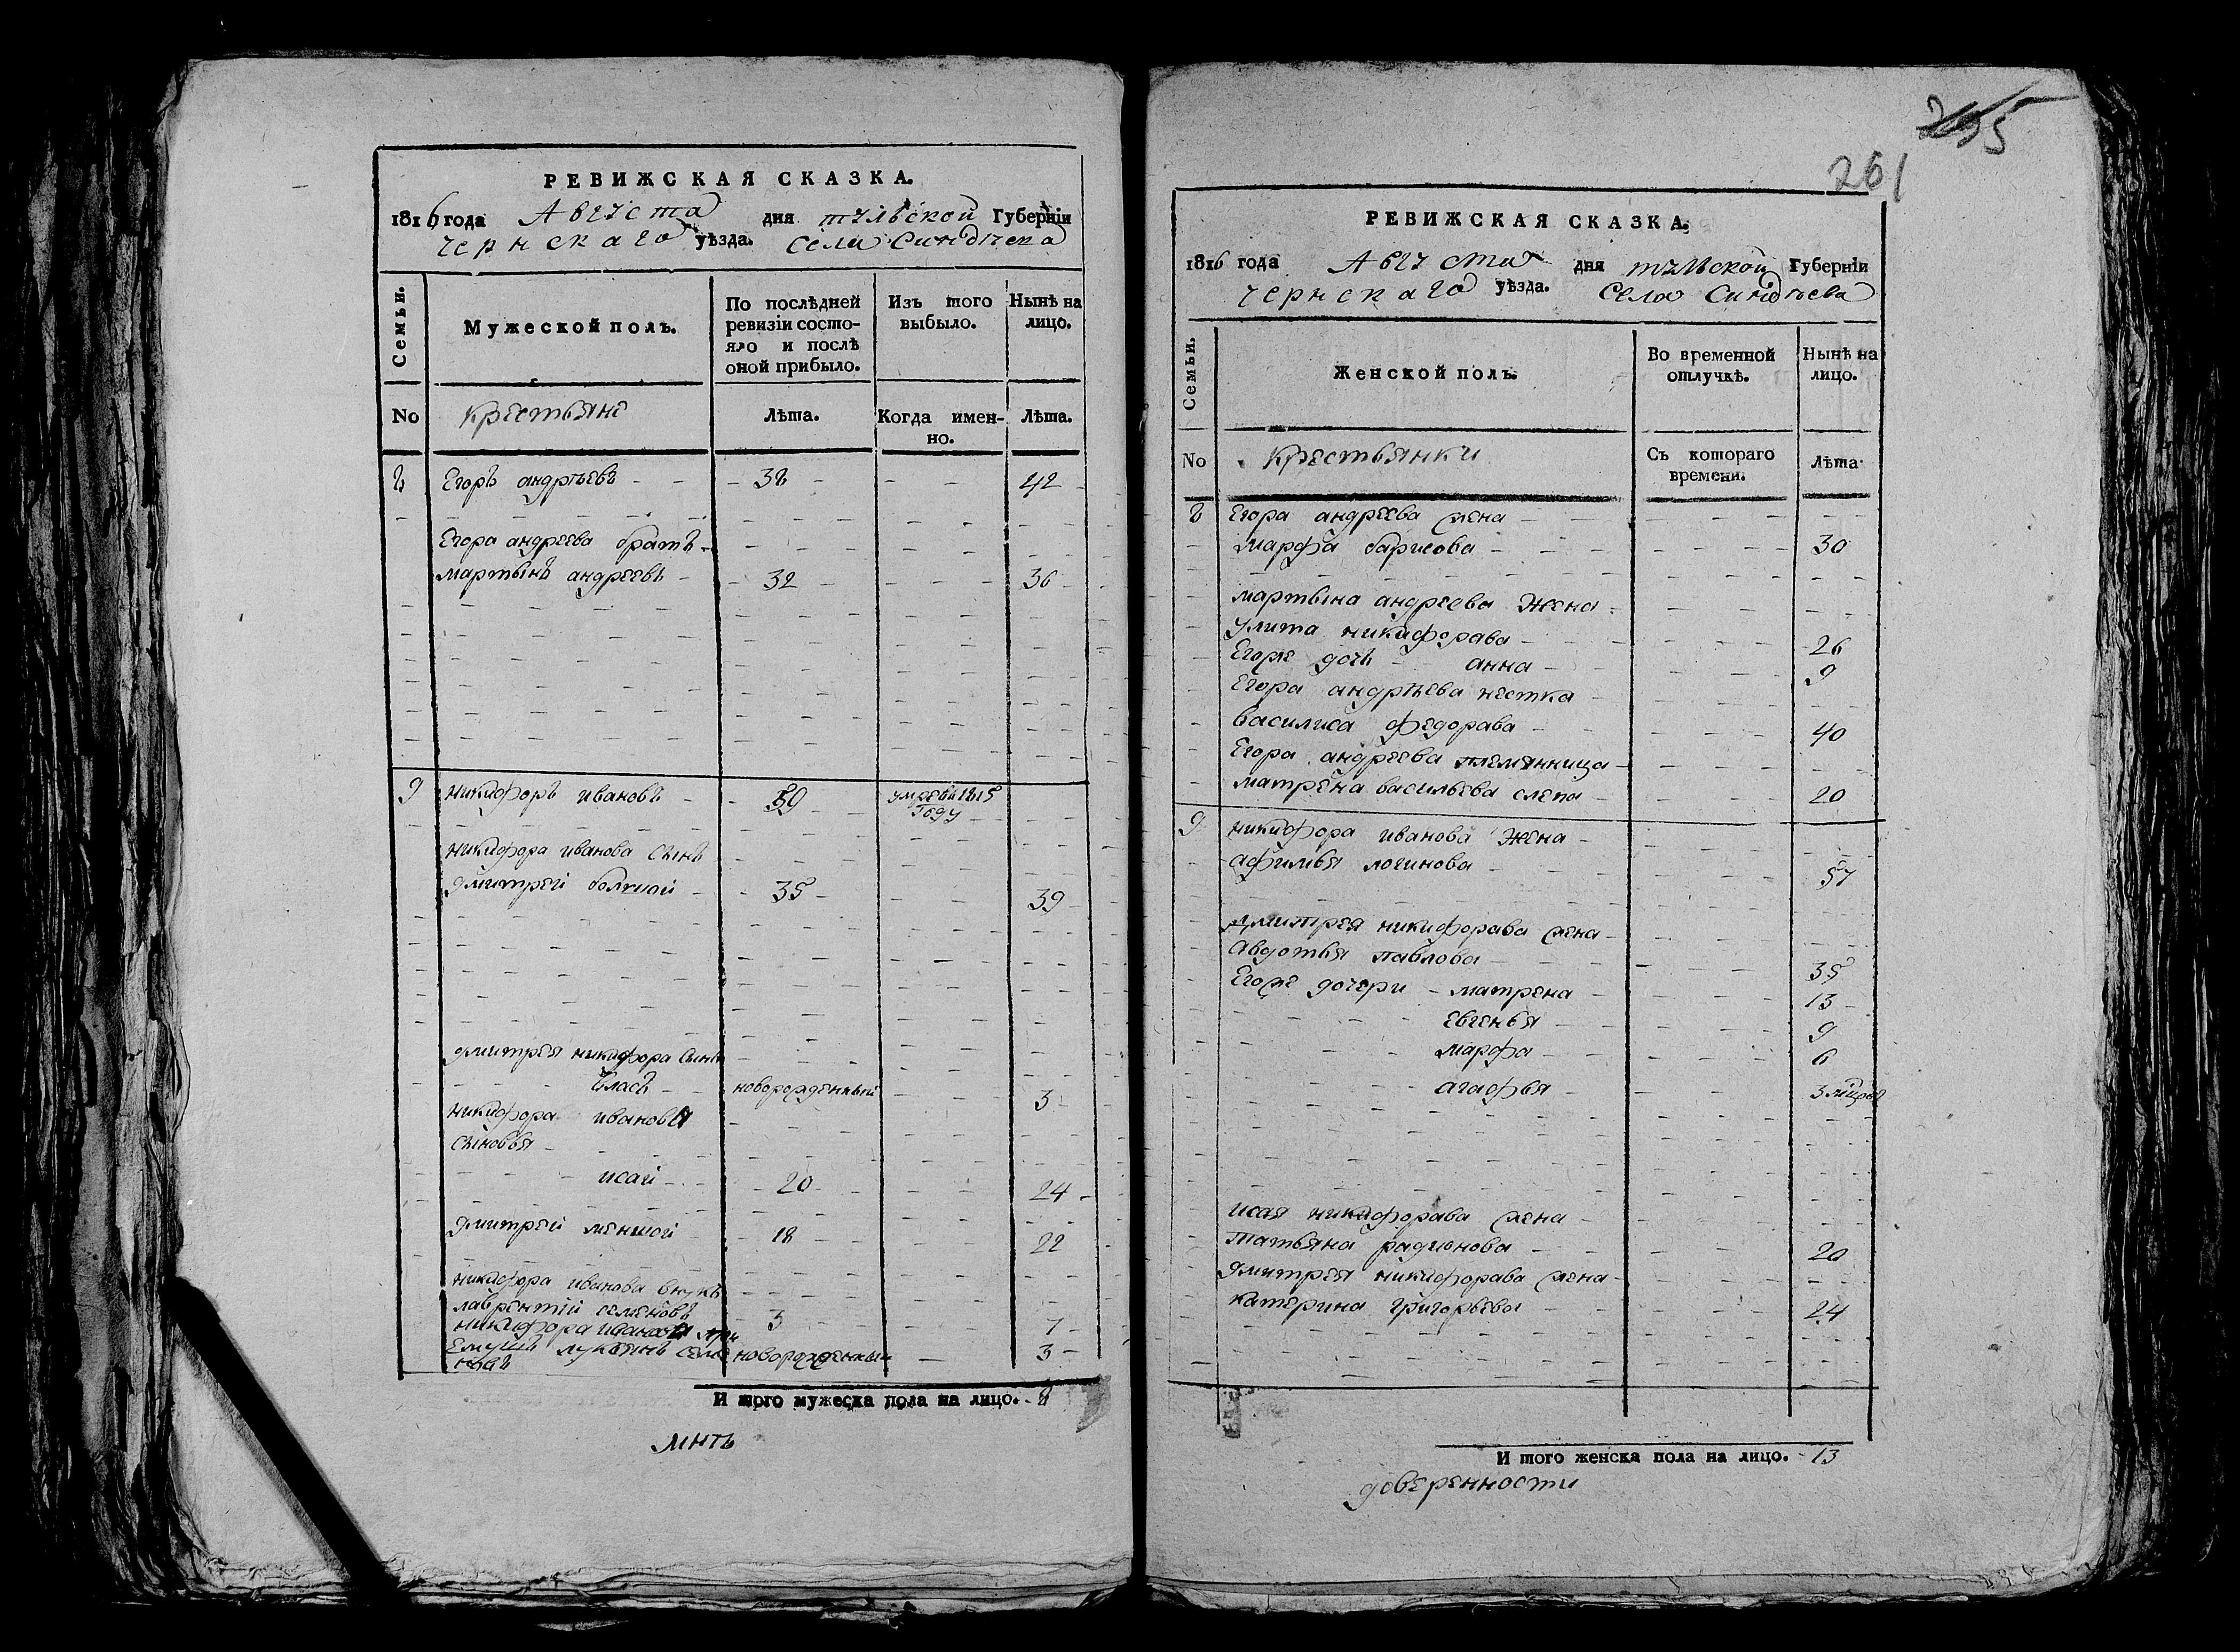 РЕВИЖСКАЯ СКАЗКА.
1816 года Августа дня тульской Губерніи
чернскаго уѣзда. Села Синдѣева
Семьи. Мужеской полъ. По послѣдней ревизіи состояло и послѣ оной прибыло. Изъ того выбыло. Нынѣ на лицо.
No крестьяне Лѣта. Когда именно. Лѣта.
8 Егоръ андрѣевъ 38 42
Егора андреева братъ
мартынъ андреевъ 32 36
9 никифоръ ивановъ 59 умре въ 1815
году
никифора иванова сынъ
дмитрей болшой 35 39
дмитрея никифора сынъ
власъ новорожденный 3
никифора иванова
сыновья
исай 20 24
дмитрей меншой 18 22
никифора иванова внукъ
лаврентий семеновъ 3 7
никифора иванова
емышъ лукьянъ семе новорожденны 3
новъ
И того мужеска пола на лицо. 8
мнтъ
255
261
РЕВИЖСКАЯ СКАЗКА.
1816 года Августа дня тульской Губерніи
чернскаго уѣзда. Села Синдѣева
Семьи. Женской полъ. Во временной отлучкѣ. Нынѣ на лицо.
No крестьянки Съ котораго времени. Лѣта
8 Егора андреева жена
марфа барисова 30
мартына андреева жена
улита никифорава 26
Егоже дочь анна 9
Егора андрѣева нестка
василиса федорава 40
Егора андреева племянница
матрена васильева слепа 20
9 никифора иванова жена
афимья логинова 57
дмитрея никифорава жена
авдотья павлова 35
Егоже дочери матрена 13
евгенья 9
марфа 6
агафья 3
исая никифорава жена
татьяна радионова 20
дмитрея никифорава жена
катерина григорьева 24
И того женска пола на лицо. 13
доверенности